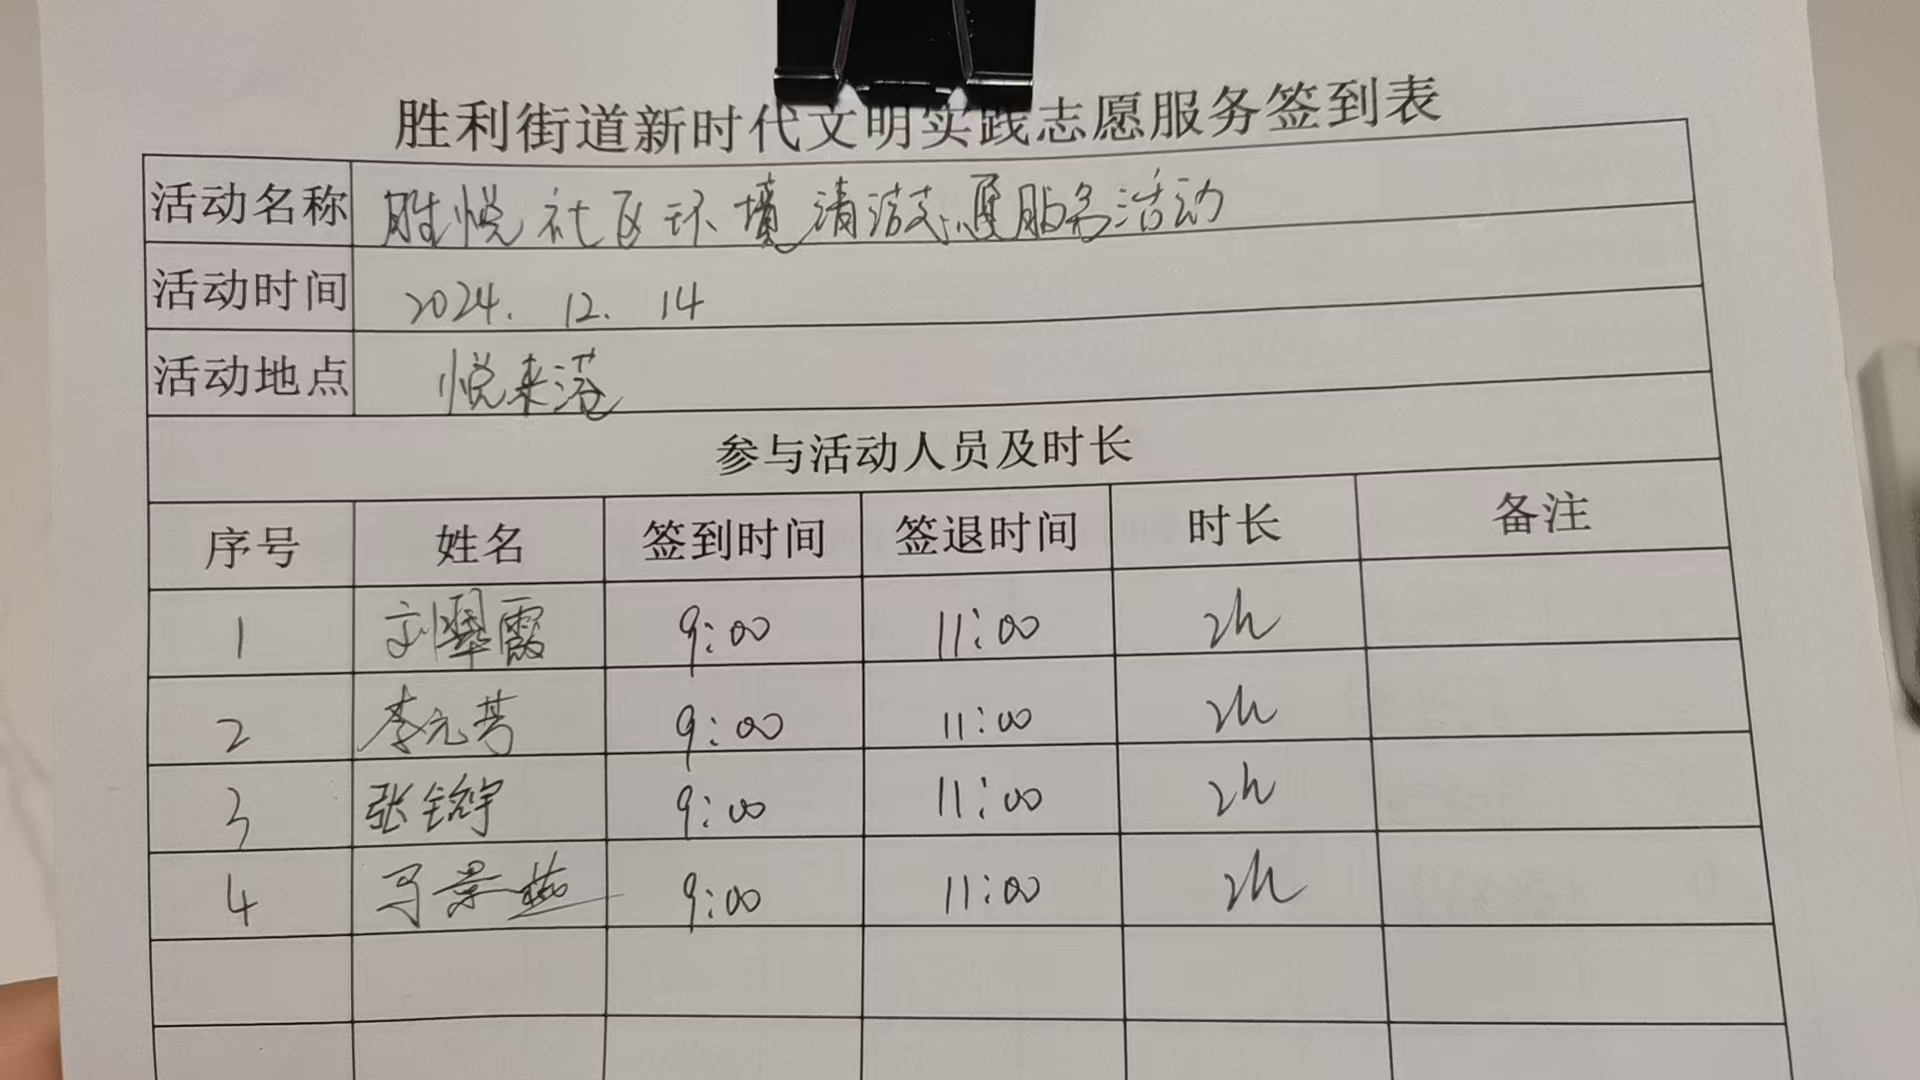 胜利街道新时代文明实践志愿服务签到表
活动名称 胜悦社区环境清洁志愿服务活动
活动时间 2024. 12. 14
活动地点 悦来港
参与活动人员及时长
序号 姓名 签到时间 签退时间 时长 备注
1 刘翠霞 9:00 11:00 2h
2 李元芳 9:00 11:00 2h
3 张 9:00 11:00 2h
4 马景燕 9:00 11:00 2h